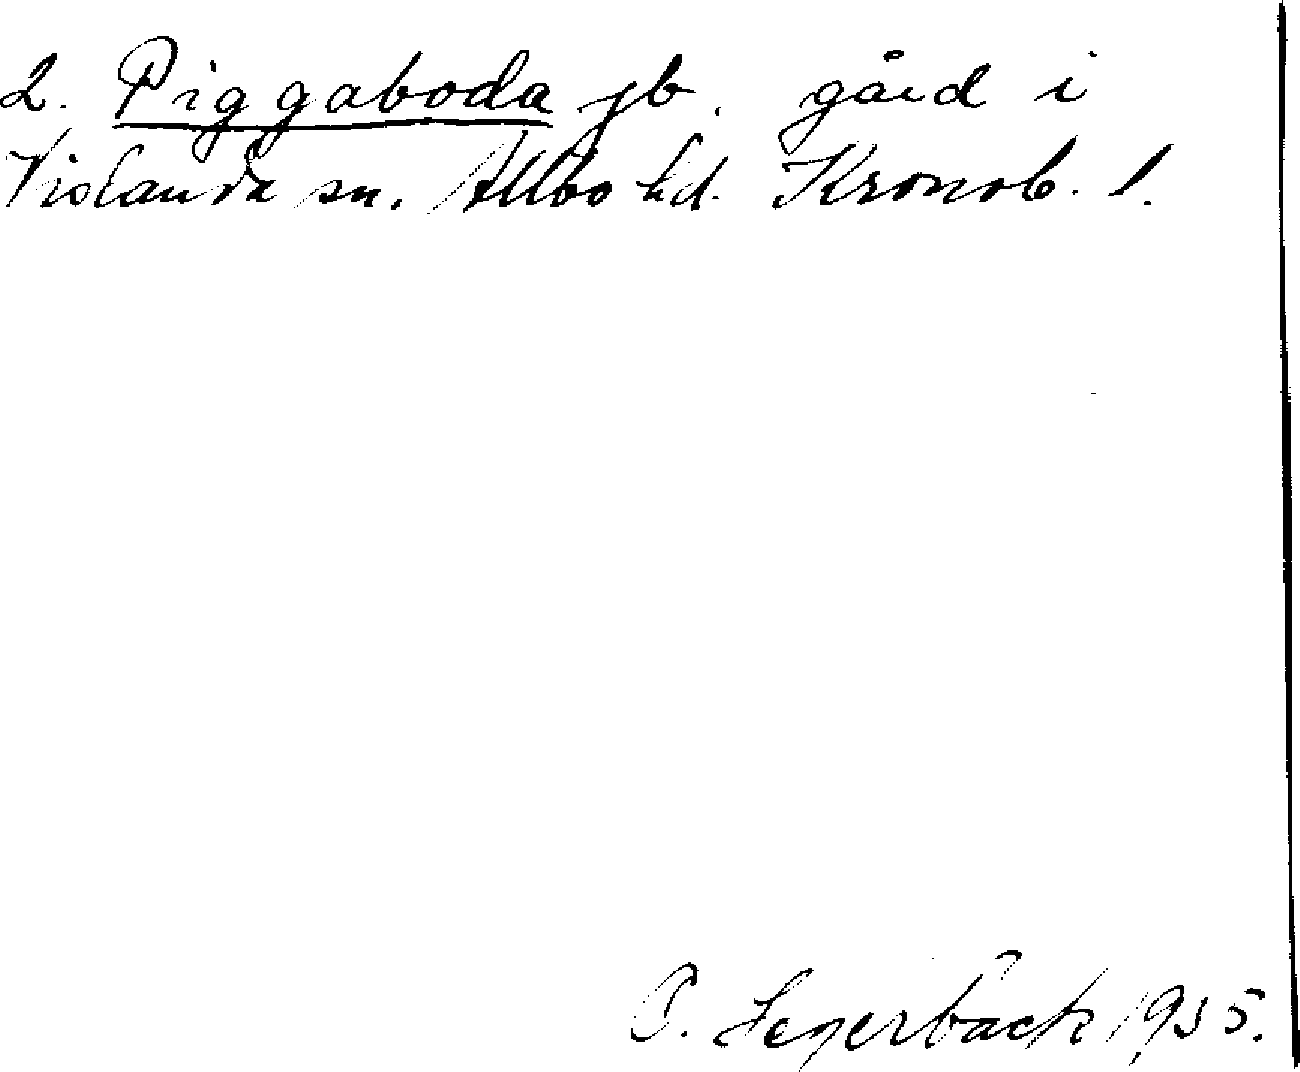 2. Piggaboda jb. gård i
Vislanda sn. Allbo hd. Kronob. l.
P. Segerbäck 1935.